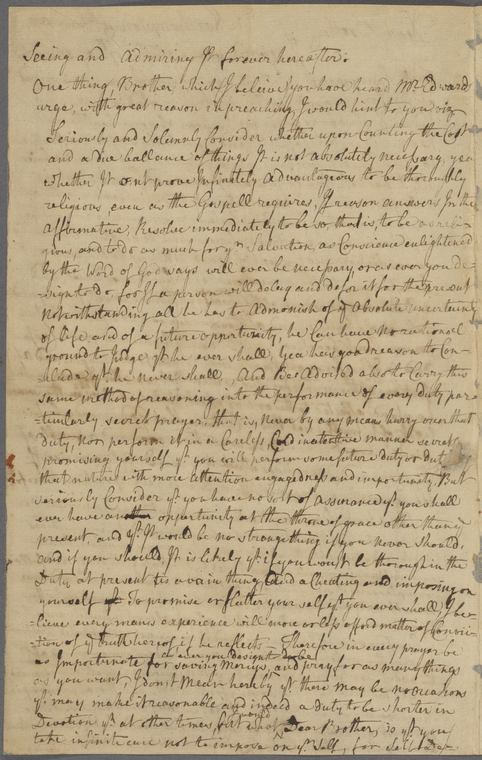 Seeing and Admiring It forever hereafter.
One thing Brother which (I beleive) you have heard Mr Edwards
urge, with great reason in preaching, I would hint to you viz
Seriously and Solemnly Consider whether upon Counting the Cost
and a due ballance of things It is not absolutely necessary, yea
whether It wont prove Infinitely Advantageous to be thoroughly
religious, even as the Gospell requires, If reason answers In the
Affirmative, Resolve immediately to be so, that is, to be as reli-
gious and to do as much for yr Salvation, as Conscience enlightened
by the Word of God says will ever be necessary, or as ever you de-
-sign to do, for If a person will delay and defer it for the present
Notwithstanding all he has to Admonish of ye Absolute uncertainty
of life and of a future opportunity, he Can have no rational
ground to Judge yt he ever shall, Yea he is good reason to Con-
clude yt he never shall, And Be Advised also to Carry this
same method of reasoning into the performance of every duty par-
-ticularly secret prayer, that is, Never by any means hurry over that
duty, Nor perform it in a Careless, Cold inattentive manner secretly
promising yourself yt you will perform some future duty or duties
that nature with more Attention engagedness and importunity But
seriously Consider yt you have no sort of assurance yt you shall
ever have another opportunity at the throne of grace other than ye
present and yt It would be no strange thing if you never should,
and if you should, It is likely yt if you wont be thorough in the
Duty at present tis a vain thing And a Cheating and imposing on
yourself To promise or flatter your self yt you ever shall, I be-
lieve every mans experience will more or less afford matter of Convic-
-tion of ye truth hereof if he reflects - Therefore in every prayer be
as Importunate for saving Mercys as ever you design to be and pray for as many things
as you want, I dont Mean hereby yt there may be no occasions
yt may make it reasonable and indeed a duty to be shorter in
Devotion yn at other times, but would Dear Brother, is yt you
take infinite care not to impose on yr Self, for Self